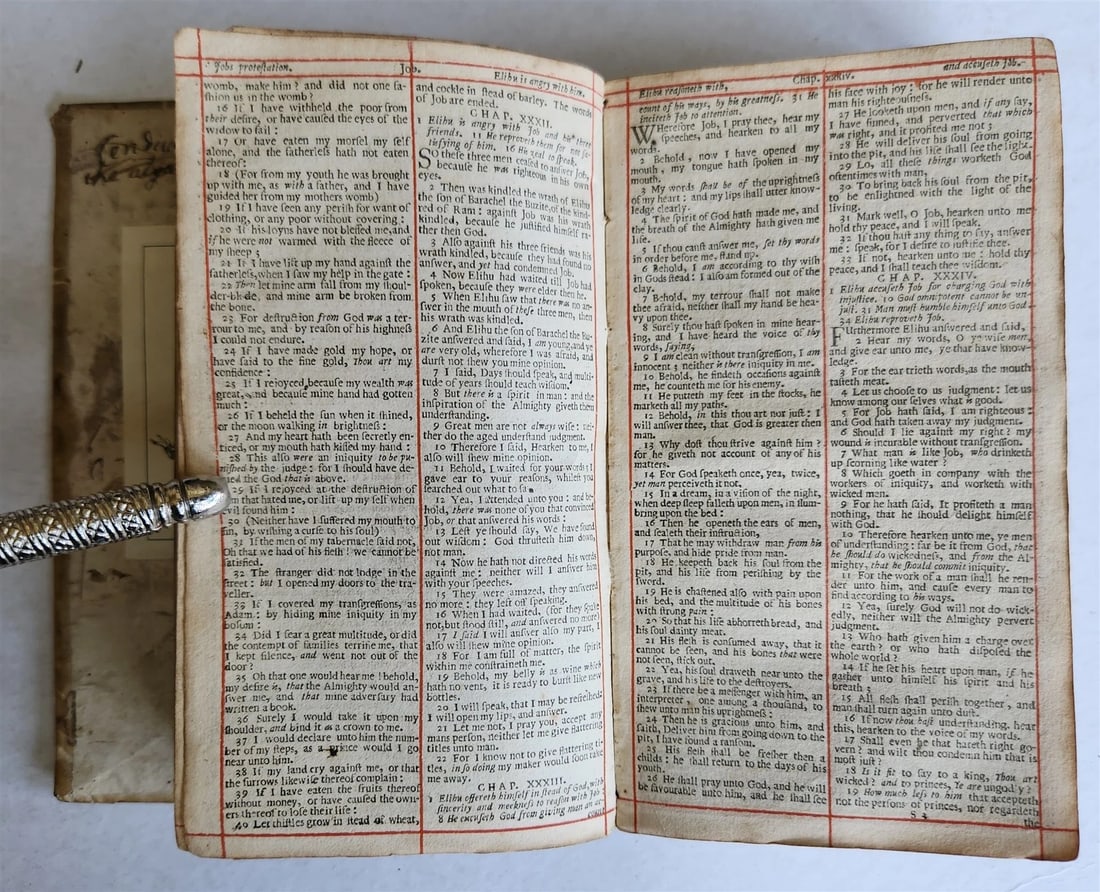 Jobs protestation.
Job.
Elihu is angry with him.
womb, make him? and did not one fa-
shion us in the womb?
16 If I have withheld the poor from
their desire, or have caused the eyes of the
widow to fail:
17 Or have eaten my morsel my self
alone, and the fatherless hath not eaten
thereof:
18 (For from my youth he was brought
up with me, as with a father, and I have
guided her from my mothers womb)
19 If I have seen any perish for want of
clothing, or any poor without covering:
20 If his loyns have not blessed me, and
if he were not warmed with the fleece of
my sheep;
21 If I have lift up my hand against the
fatherless, when I saw my help in the gate:
22 Then let mine arm fall from my shoul-
der-blade, and mine arm be broken from
the bone.
23 For destruction from God was a ter-
rour to me, and by reason of his highness
I could not endure.
24 If I have made gold my hope, or
have said to the fine gold, Thou art my
confidence:
25 If I rejoyced because my wealth was
great, and because mine hand had gotten
much:
26 If I beheld the sun when it shined,
or the moon walking in brightness:
27 And my heart hath been secretly en-
ticed, or my mouth hath kissed my hand:
28 This also were an iniquity to be pu-
nished by the judge: for I should have de-
nied the God that is above.
29 If I rejoyced at the destruction of
him that hated me, or lift up my self when
evil found him:
30 (Neither have I suffered my mouth to
sin, by wishing a curse to his soul)
31 If the men of my tabernacle said not,
Oh that we had of his flesh! we cannot be
satisfied.
32 The stranger did not lodge in the
street: but I opened my doors to the tra-
veller.
33 If I covered my transgressions, as
Adam: by hiding mine iniquity in my
bosom:
34 Did I fear a great multitude, or did
the contempt of families terrifie me, that
I kept silence, and went not out of the
door?
35 Oh that one would hear me! behold,
my desire is, that the Almighty would an-
swer me, and that mine adversary had
written a book.
36 Surely I would take it upon my
shoulder, and bind it as a crown to me.
37 I would declare unto him the num-
ber of my steps, as a prince would I go
near unto him.
38 If my land cry against me, or that
the furrows likewise thereof complain:
39 If I have eaten the fruits thereof
without money, or have caused the own-
ers thereof to lose their life:
40 Let thistles grow in stead of wheat,
and cockle in stead of barley. The words
of Job are ended.
CHAP. XXXII.
1 Elihu is angry with Job and his three
friends. 11 He reproveth them for not sa-
tisfying of him. 16 His zeal to speak.
SO these three men ceased to answer Job,
because he was righteous in his own
eyes.
2 Then was kindled the wrath of Elihu
the son of Barachel the Buzite, of the kind-
red of Ram: against Job was his wrath
kindled, because he justified himself ra-
ther then God.
3 Also against his three friends was his
wrath kindled, because they had found no
answer, and yet had condemned Job.
4 Now Elihu had waited till Job had
spoken, because they were elder then he.
5 When Elihu saw that there was no an-
swer in the mouth of these three men, then
his wrath was kindled.
6 And Elihu the son of Barachel the Bu-
zite answered and said, I am young, and ye
are very old, wherefore I was afraid, and
durst not shew you mine opinion.
7 I said, Days should speak, and multi-
tude of years should teach wisdom.
8 But there is a spirit in man: and the
inspiration of the Almighty giveth them
understanding.
9 Great men are not always wise: nei-
ther do the aged understand judgment.
10 Therefore I said, Hearken to me, I
also will shew mine opinion.
11 Behold, I waited for your words; I
gave ear to your reasons, whilest you
searched out what to say.
12 Yea, I attended unto you: and be-
hold, there was none of you that convinced
Job, or that answered his words:
13 Lest ye should say, We have found
out wisdom: God thrusteth him down,
not man.
14 Now he hath not directed his words
against me: neither will I answer him
with your speeches.
15 They were amazed, they answered
no more: they left off speaking.
16 When I had waited, (for they spake
not, but stood still, and answered no more)
17 I said I will answer also my part, I
also will shew mine opinion.
18 For I am full of matter, the spirit
within me constraineth me.
19 Behold, my belly is as wine which
hath no vent, it is ready to burst like new
bottles.
20 I will speak, that I may be refreshed:
I will open my lips, and answer.
21 Let me not, I pray you, accept any
mans person, neither let me give flattering
titles unto man.
22 For I know not to give flattering ti-
tles, in so doing my maker would soon take
me away.
CHAP. XXXIII.
1 Elihu offereth himself in stead of God, with
sincerity and meekness to reason with Job
8 He excuseth God from giving man an ac-
Elihu reasoneth with,
Chap. xxxiv.
and accuseth Job.
count of his ways, by his greatness. 31 He
inciteth Job to attention.
WHerefore Job, I pray thee, hear my
speeches, and hearken to all my
words.
2 Behold, now I have opened my
mouth, my tongue hath spoken in my
mouth.
3 My words shall be of the uprightness
of my heart: and my lips shall utter know-
ledge clearly.
4 The spirit of God hath made me, and
the breath of the Almighty hath given me
life.
5 If thou canst answer me, set thy words
in order before me, stand up.
6 Behold, I am according to thy wish
in Gods stead: I also am formed out of the
clay.
7 Behold, my terrour shall not make
thee afraid, neither shall my hand be hea-
vy upon thee.
8 Surely thou hast spoken in mine hear-
ing, and I have heard the voice of thy
words, saying,
9 I am clean without transgression, I am
innocent; neither is there iniquity in me.
10 Behold, he findeth occasions against
me, he counteth me for his enemy.
11 He putteth my feet in the stocks, he
marketh all my paths.
12 Behold, in this thou art not just: I
will answer thee, that God is greater then
man.
13 Why dost thou strive against him?
for he giveth not account of any of his
matters.
14 For God speaketh once, yea, twice,
yet man perceiveth it not.
15 In a dream, in a vision of the night,
when deep sleep falleth upon men, in slum-
bring upon the bed:
16 Then he openeth the ears of men,
and sealeth their instruction,
17 That he may withdraw man from his
purpose, and hide pride from man.
18 He keepeth back his soul from the
pit, and his life from perishing by the
sword.
19 He is chastened also with pain upon
his bed, and the multitude of his bones
with strong pain:
20 So that his life abhorreth bread, and
his soul dainty meat.
21 His flesh is consumed away, that it
cannot be seen, and his bones that were
not seen, stick out.
22 Yea, his soul draweth near unto the
grave, and his life to the destroyers.
23 If there be a messenger with him, an
interpreter, one among a thousand, to
shew unto man his uprightness:
24 Then he is gracious unto him, and
saith, Deliver him from going down to the
pit, I have found a ransom.
25 His flesh shall be fresher then a
childs: he shall return to the days of his
youth.
26 He shall pray unto God, and he will
be favourable unto him, and he shall see
his face with joy: for he will render unto
man his righteousness.
27 He looketh upon men, and if any say,
I have sinned, and perverted that which
was right, and it profited me not;
28 He will deliver his soul from going
into the pit, and his life shall see the light.
29 Lo, all these things worketh God
oftentimes with man,
30 To bring back his soul from the pit,
to be enlightned with the light of the
living.
31 Mark well, O Job, hearken unto me
hold thy peace, and I will speak.
32 If thou hast any thing to say, answer
me: speak, for I desire to justifie thee.
33 If not, hearken unto me: hold thy
peace, and I shall teach thee wisdom.
CHAP. XXXIV.
1 Elihu accuseth Job for charging God with
injustice. 10 God omnipotent cannot be un-
just. 31 Man must humble himself unto God
34 Elihu reproveth Job.
FUrthermore Elihu answered and said,
2 Hear my words, O ye wise men,
and give ear unto me, ye that have know-
ledge.
3 For the ear trieth words, as the mouth
tasteth meat.
4 Let us choose to us judgment: let us
know among our selves what is good.
5 For Job hath said, I am righteous:
and God hath taken away my judgment.
6 Should I lie against my right? my
wound is incurable without transgression.
7 What man is like Job, who drinketh
up scorning like water?
8 Which goeth in company with the
workers of iniquity, and worketh with
wicked men.
9 For he hath said, It profiteth a man
nothing, that he should delight himself
with God.
10 Therefore hearken unto me, ye men
of understanding: far be it from God, that
he should do wickedness, and from the Al-
mighty, that he should commit iniquity.
11 For the work of a man shall he ren-
der unto him, and cause every man to
find according to his ways.
12 Yea, surely God will not do wick-
edly, neither will the Almighty pervert
judgment.
13 Who hath given him a charge over
the earth? or who hath disposed the
whole world?
14 If he set his heart upon man, if he
gather unto himself his spirit and his
breath;
15 All flesh shall perish together, and
man shall turn again unto dust.
16 If now thou hast understanding, hear
this, hearken to the voice of my words.
17 Shall even he that hateth right go-
vern? and wilt thou condemn him that is
most just?
18 Is it fit to say to a king, Thou art
wicked? and to princes, Ye are ungodly?
19 How much less to him that accepteth
not the persons of princes, nor regardeth
S 3
the